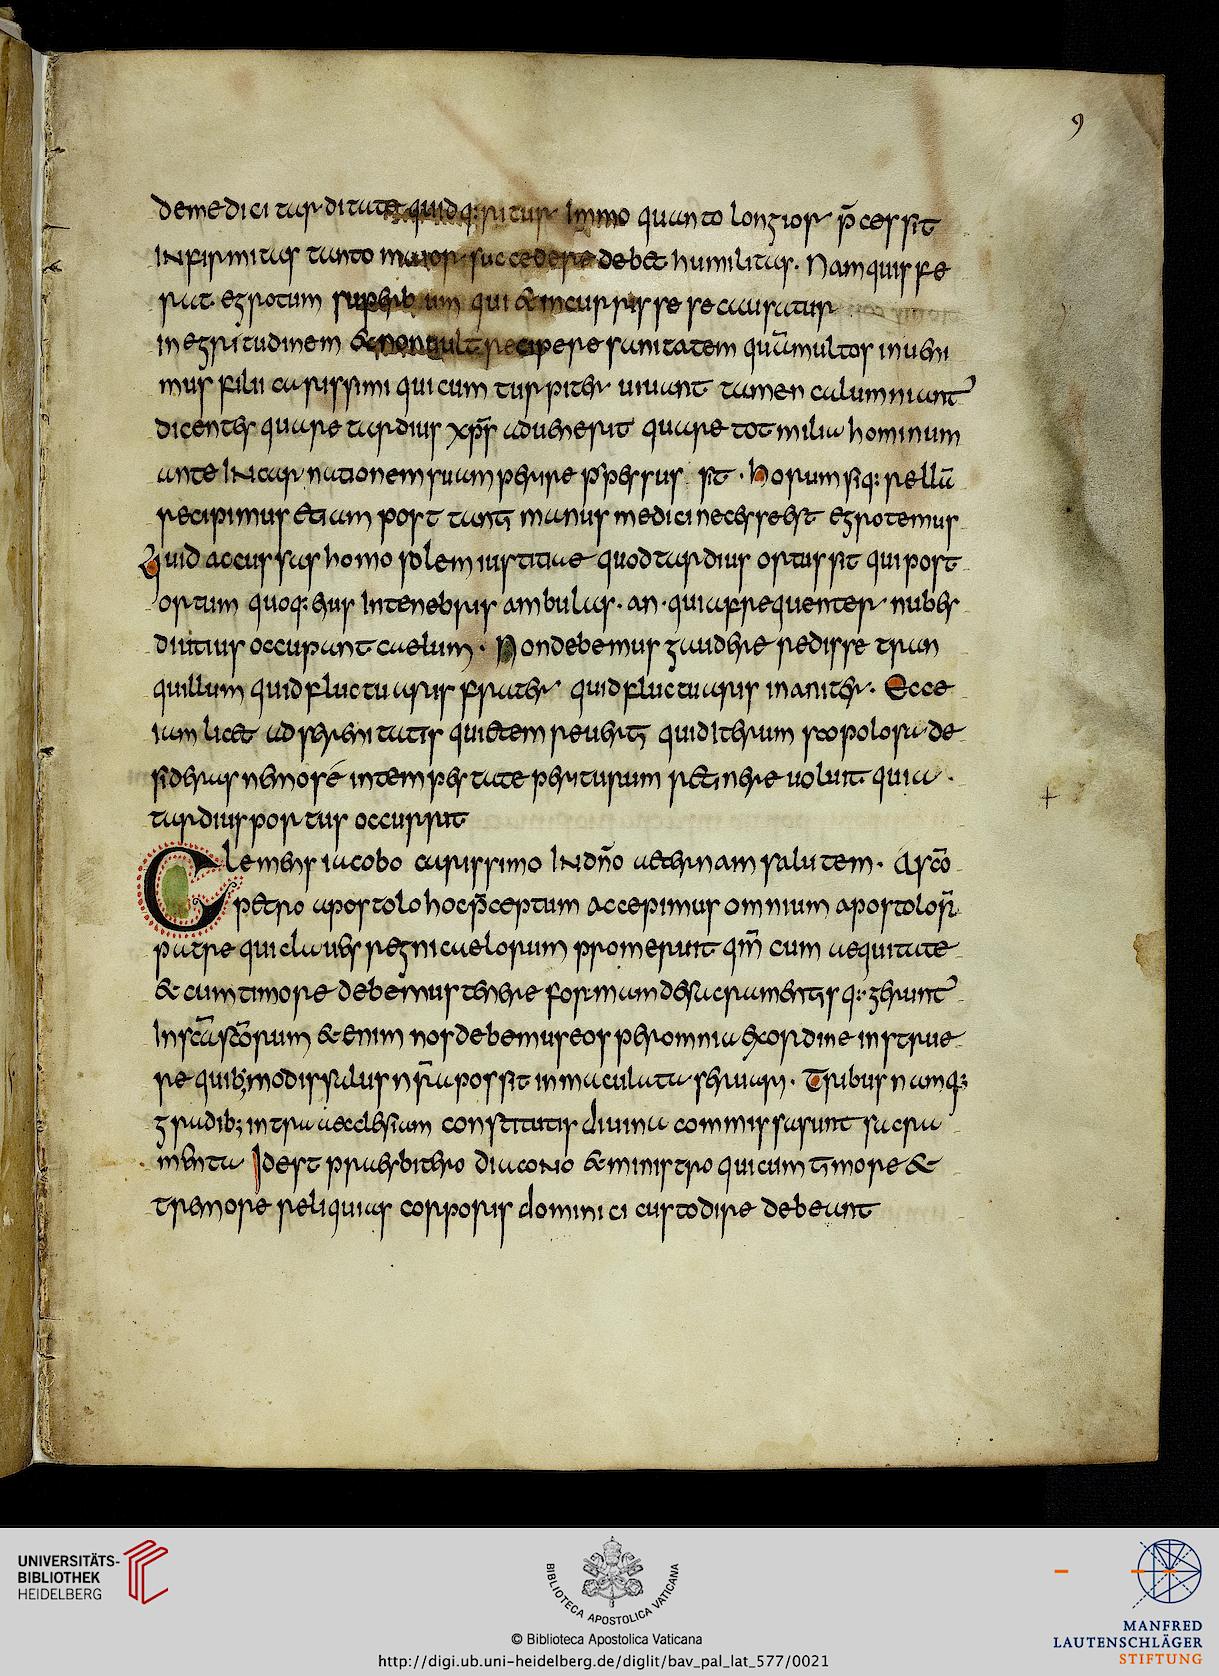 9
demedici tarditate quidq: ritur Immo quanto longior p̄cessit
INfirmitas tanto maior succedere debet humilitas. Nam quis fe
rat egrotum superbum qui & incurrisse recausatur
in egritudinem & non uult recipere sanitatem quā multos inueni
mus filii carissimi qui cum turpiter uiuant tamen calumniant᷑
dicentes quare tardius xp̄s aduenerit quare tot milia hominum
ante INcarnationem suam perire p̄persus sit. horum siq: rellū
recipimus etiam post tanti manus medici necesse est egrotemus
Quid accussas homo solem iustitiae quod tardius ortus sit qui post
ortum quoq: eius Intenebris ambulas. an. quia frequenter nubes
diutius occupant caelum. Non debemus gaudere redisse tran
quillum quid fluctuaris frater quid fluctuaris inaniter. Ecce
iam licet ad serenitatis quietem reuerti quid Iterum scopolosa de
sideras nemoré in tempestate periturum retinere uoluit quia.
tardius portus occurrit
Clemens iacobo carissimo INdn̄o aeternam salutem. A sc̄o
petro apostolo hoc p̄ceptum accepimus omnium apostolor̄
patre qui claues regni caelorum promeruit qm̄ cum aequitate
& cum timore debemus tenere formam de sacramentis q: gerunt᷑
Insc̄a sc̄orum & enim nos debemus eos per omnia exordine instrue
re quib; modis salus nr̄a possit inmaculata seruari. Tribus namq;
gradib; intra aecclesiam constitutis diuina commissa sunt sacra
menta Idest praesbitero diacono & ministro qui cum timore &
tremore reliquias corporis dominici custodire debeant
UNIVERSITÄTS-
BIBLIOTHEK
HEIDELBERG
BIBLIOTECA APOSTOLICA VATICANA
© Biblioteca Apostolica Vaticana
http://digi.ub.uni-heidelberg.de/diglit/bav_pal_lat_577/0021
MANFRED
LAUTENSCHLÄGER
STIFTUNG